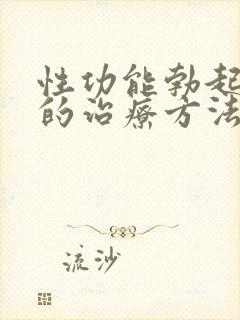 性功能勃起
的治療方法
流沙